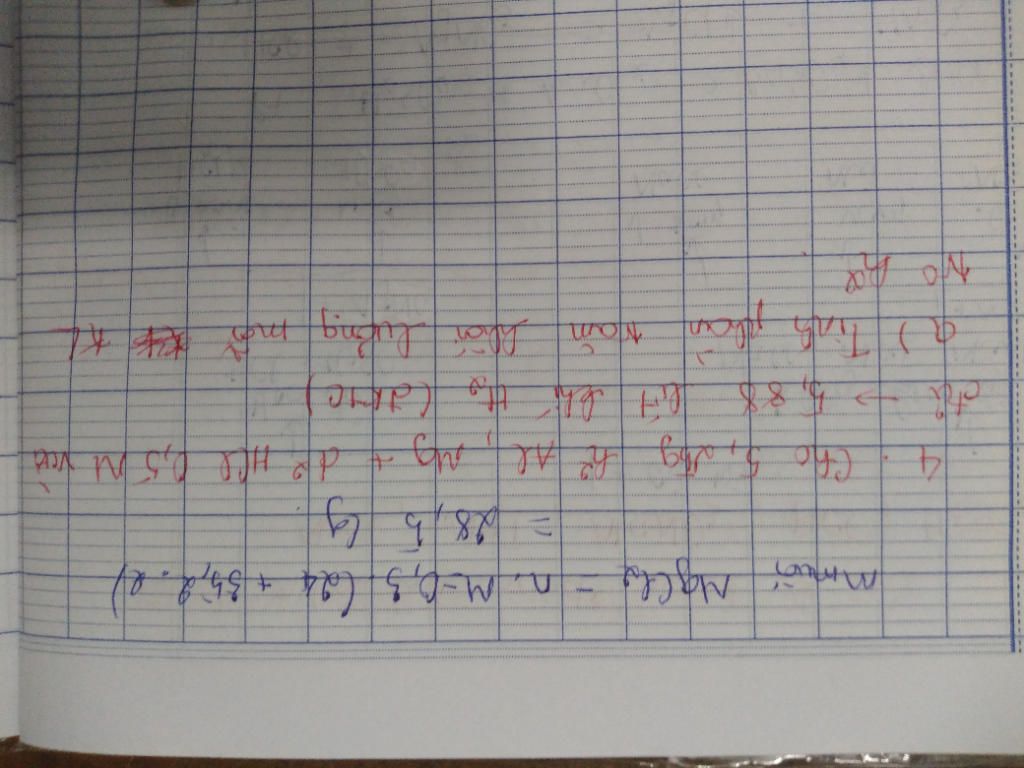 m muối MgCl2 = n. M = 0,3. (24 + 35,2.2)
= 28,5 (g
4. Cho 5,1g h² Al, Mg + d² HCl 0,5M vừa
đủ -> 5,88 lít khí H2 (đktc)
a) Tính phần trăm khối lượng mỗi KL
h²